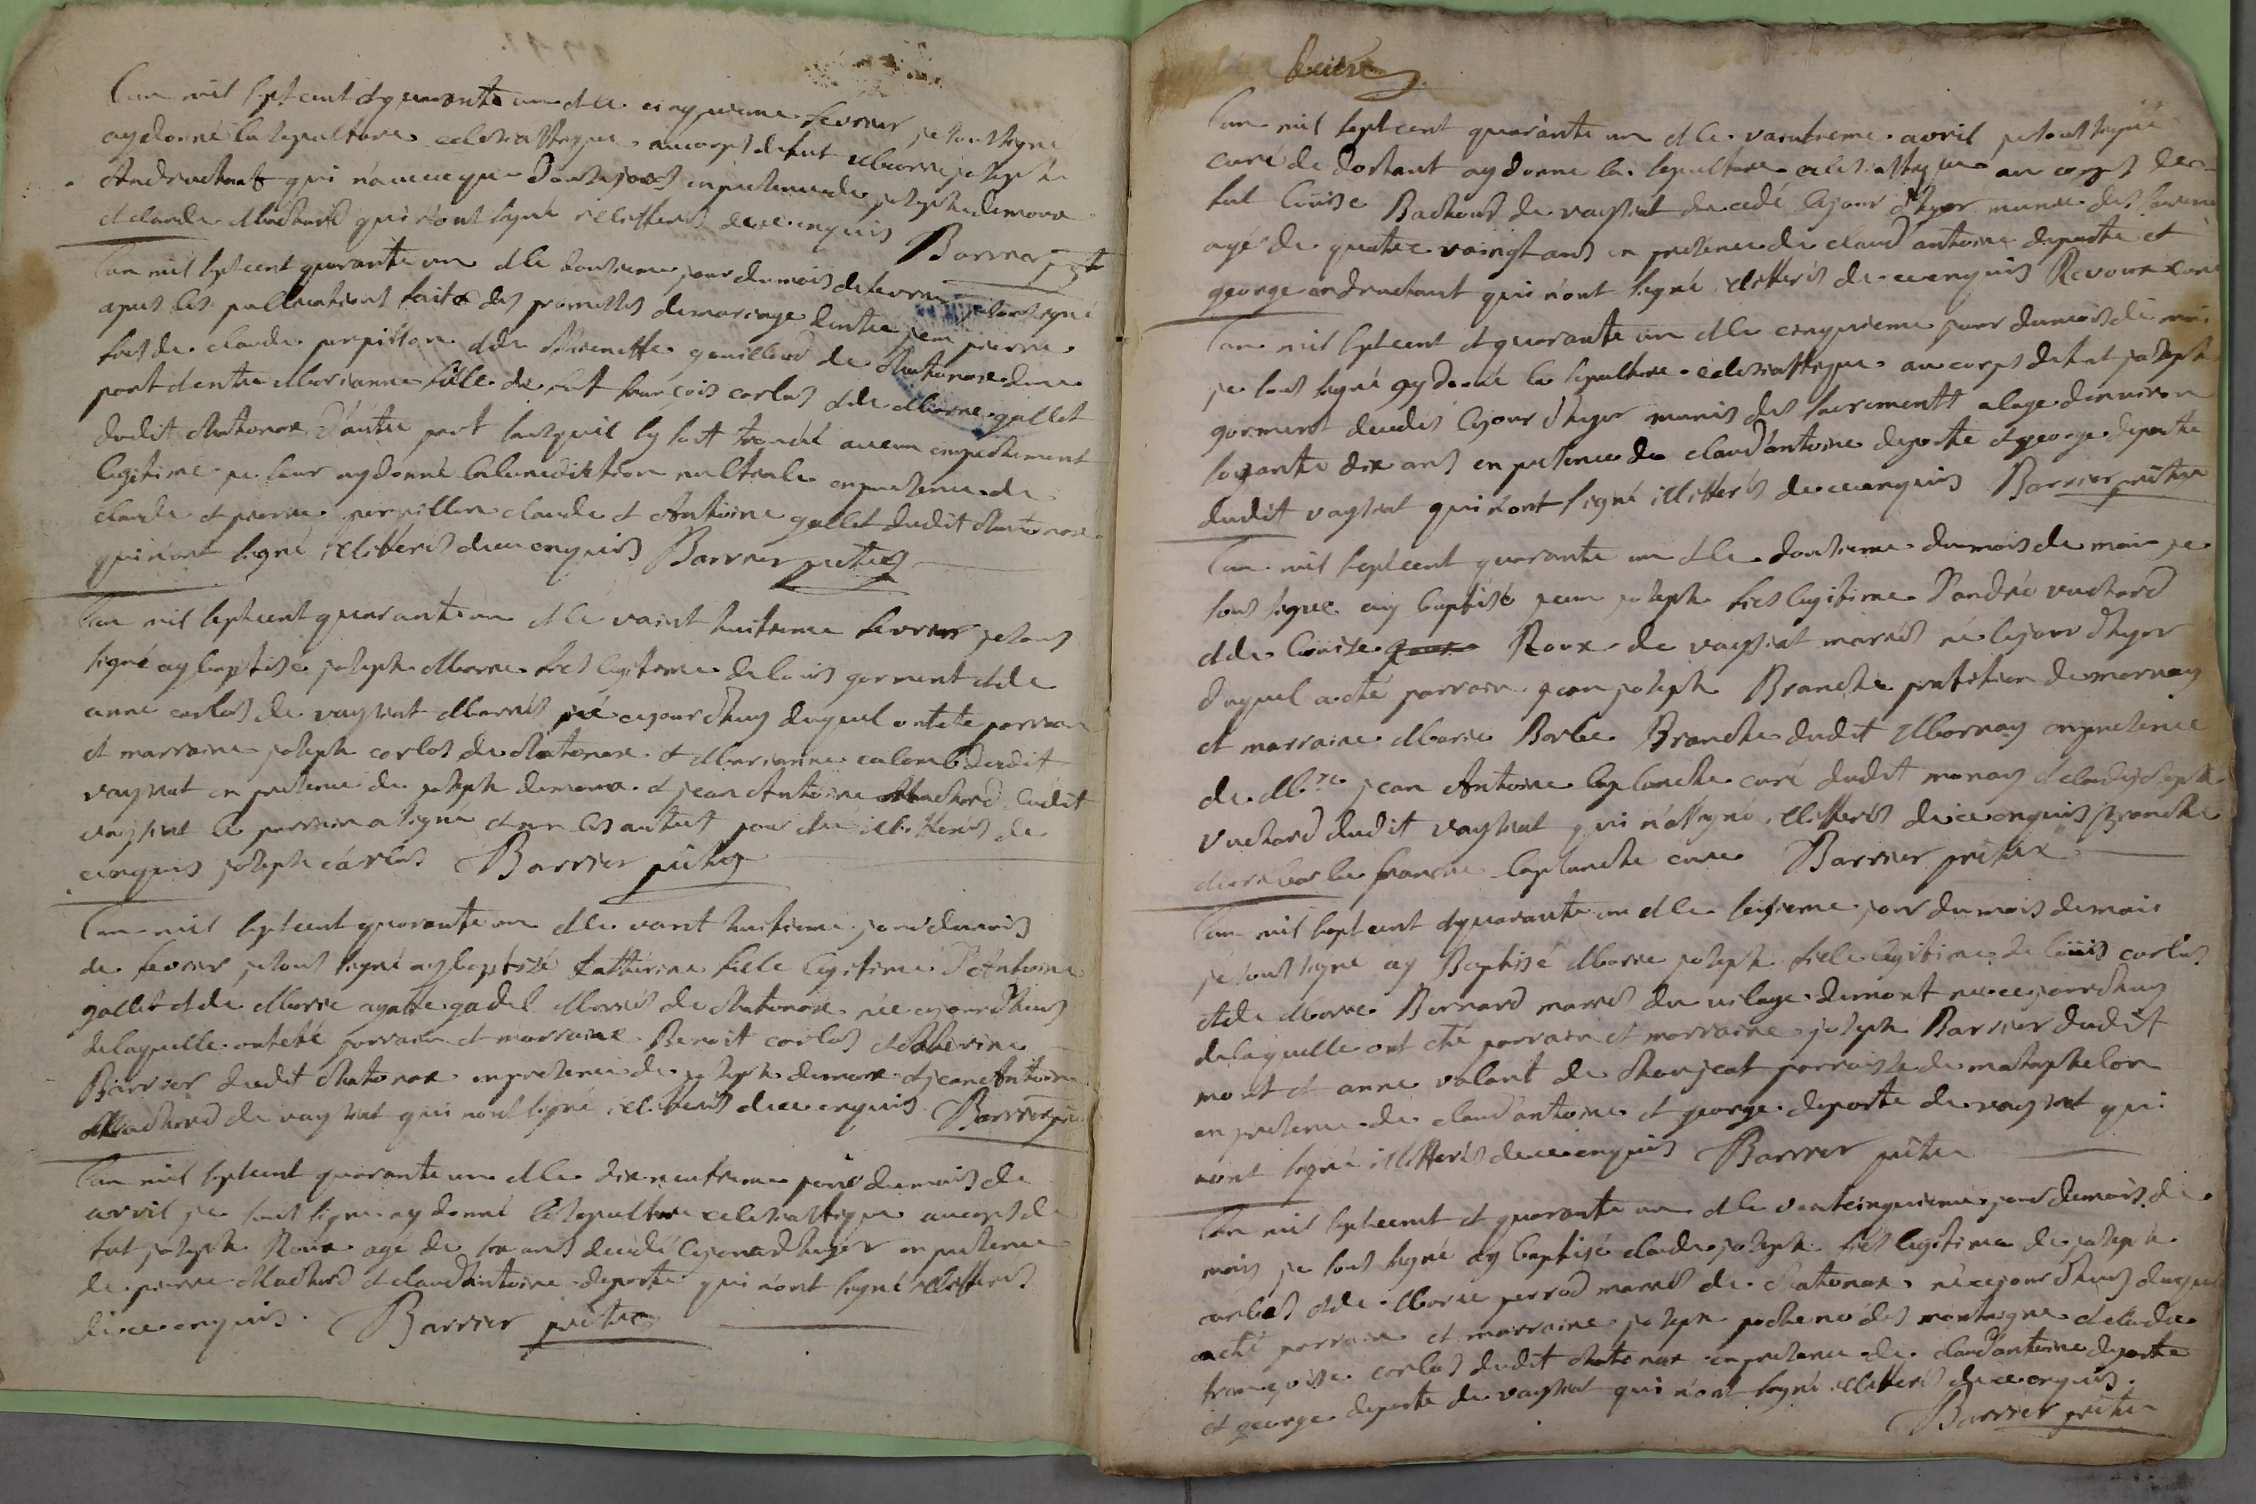 L'an mil sept cent et quarante un et le cinquieme fevrier je sous signé
ay donné la sepulture eclesiastique au corps de fut Marie joseph
Andruchant qui n'a vecu que jours en presence de joseph demora
et claude Machard qui n'ont signé illetterés de ce enquis Barrier
L'an mil sept cent quarante un et le jour du mois de fevrier je sous signé
apres les publications faites des promesses de mariage d'entre jean pierre
fils de claude perpillon et de gouilloud de Chatonax d'une
part et d'entre Marianne fille de fut francois carlas et de Marie gallet
dudit Chatonax d'autre part sans qu'il sy soit trouvé aucun empechement
legitime je leur ay donné la benediction nubtiale en presence de
claude et pierre perpillon claude et Antoine gallet dudit Chatonax
qui n'ont signé illiterés de ce enquis Barrier prêtre
L'an mil sept cent quarante un et le vaint huitieme fevrier je sous
signé ay baptisé joseph Marie fils legitime de louis gormend et de
anne carlas de vaysiat Mariés né cejourdhuy duquel ont eté parrain
et marraine joseph carlas de Chatonax et Marianne calomb dudit
vaysiat en presence de joseph demora et jean Antoine Machard dudit
vaysiat le parrain a signé et non les autres pour etre illitterés de
ce enquis joseph carlas Barrier prêtre
L'an mil sept cent quarante un et le vaint huitieme jour du mois
de fevrier je sous signé ay baptisé Catherine fille legitime d'Antoine
gallet et de Marie agathe gadel Mariés de Chatonax née cejourdhuy
de laquelle ont eté parrain et marraine Benoit carlas et
Barrier dudit Chatonax en presence de joseph demora et jean Antoine
Machard de vaysiat qui n'ont signé illiterés de ce enquis Barrier
L'an mil sept cent quarante un et le dix neuvieme jour du mois de
avril je sous signé ay donné la sepulture eclesiastique au corps de
fut joseph Roux agé de ans decedé le jour d'hyer en presence
de pierre Machard et claud'antoine deporte qui n'ont signé illetterés
de ce enquis. Barrier prêtre
L'an mil sept cent quarante un et le avril je sous signé
curé de dortant ay donné la sepulture eclesiastique au corps de
fut Louise Bachoud de vaysiat decedé le jour d'hyer munie des
agé de quatre vaingt ans en presence de claud'antoine deporte et
george andruchant qui n'ont signé illetterés de ce enquis Ravoux curé
L'an mil sept cent et quarante un et le cinquieme jour du mois de mai
je sous signé ay donné la sepulture eclesiastique au corps de fut joseph
gormend decedés le jour d'hyer munis des sacrements a l'age d'environ
soixante dix ans en presence de claud'antoine deporte et george deporte
dudit vaysiat qui n'ont signé illitterés de ce enquis Barrier prêtre
L'an mil sept cent quarante un et le douzieme du mois de mai je
sous signé ay baptisé jean joseph fils legitime d'andré vuchard
et de Louise Roux de vaysiat mariés né le jour d'hyer
duquel a eté parrain jean joseph Branche pratitien de mornay
et marraine Marie Barbe Branche dudit Mornay en presence
de Mre jean Antoine laplanche curé dudit mornay et claude joseph
vuchard dudit vaysiat qui n'a signé illetterés de ce enquis Branche
laplanche curé Barrier prêtre
L'an mil sept cent et quarante un et le seizieme jour du mois de mai
je sous signé ay Baptisé Marie joseph fille legitime de Louis carlas
et de Marie Bernard mariés du vilage de mont née cejourdhuy
de laquelle ont eté parrain et marraine joseph Barrier dudit
mont et anne volant de parroisse de mataphelon
en presence de claud'antoine et george deporte de vaysiat qui
n'ont signé illitterés de ce enquis Barrier prêtre
L'an mil sept cent et quarante un et le vint cinquieme jour du mois de
mais je sous signé ay baptisé claude joseph fils legitime de joseph
carlas et de Marie perrod mariés de Chatonax né cejourdhuy duquel
a eté parrain et marraine joseph pochenod des montagne et claude
francoise carlas dudit chatonax en presence de claud'antoine deporte
et george deporte de vaysiat qui n'ont signé illetterés de ce enquis.
Barrier prêtre